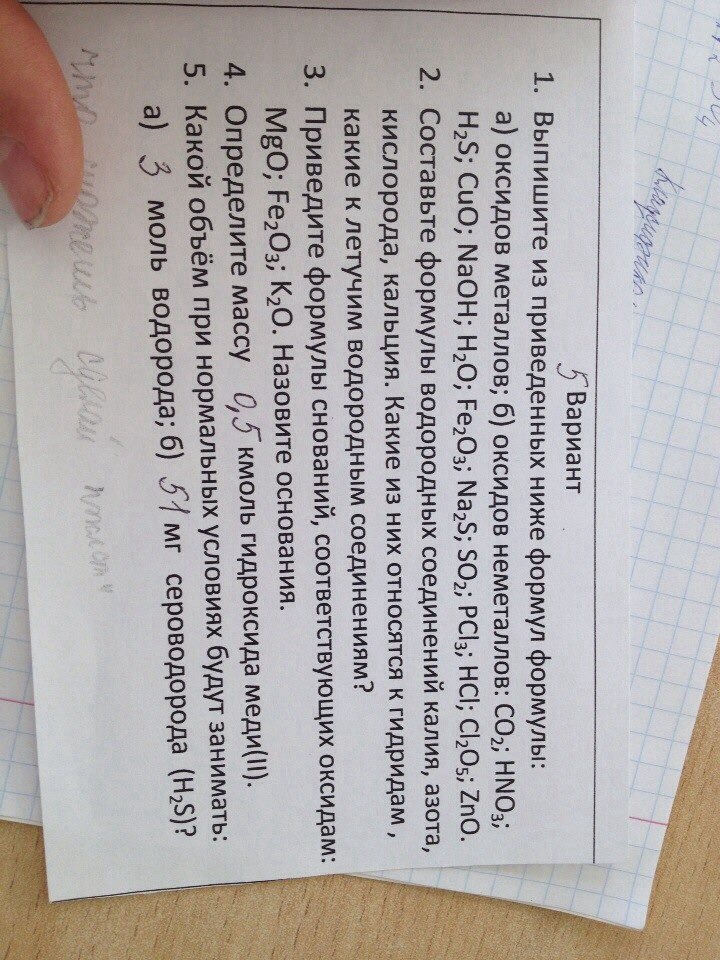 5 Вариант
1. Выпишите из приведенных ниже формул формулы:
а) оксидов металлов; б) оксидов неметаллов: CO₂; HNO₃;
H₂S; CuO; NaOH; H₂O; Fe₂O₃; Na₂S; SO₂; PCl₃; HCl; Cl₂O₅; ZnO.
2. Составьте формулы водородных соединений калия, азота,
кислорода, кальция. Какие из них относятся к гидридам ,
какие к летучим водородным соединениям?
3. Приведите формулы снований, соответствующих оксидам:
MgO; Fe₂O₃; K₂O. Назовите основания.
4. Определите массу 0,5 кмоль гидроксида меди(II).
5. Какой объём при нормальных условиях будут занимать:
а) 3 моль водорода; б) 51 мг сероводорода (H₂S)?
что